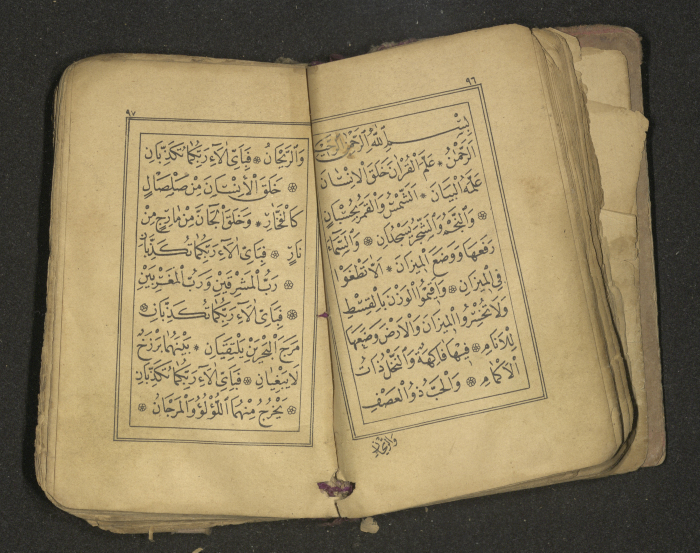 ٩٦
بِسْمِ اللّٰهِ الرَّحْمٰنِ الرَّحِيْمِ
الرَّحْمٰنُ ❊ عَلَّمَ الْقُرْاٰنَ خَلَقَ الْاِنْسَانَ
عَلَّمَهُ الْبَيَانَ ❊ اَلشَّمْسُ وَالْقَمَرُ بِحُسْبَانٍ
❊ وَالنَّجْمُ وَالشَّجَرُ يَسْجُدَانِ ❊ وَالسَّمَاءَ
رَفَعَهَا وَوَضَعَ الْمِيْزَانَ ❊ اَلَّا تَطْغَوْا
فِى الْمِيْزَانِ ❊ وَاَقِيْمُوا الْوَزْنَ بِالْقِسْطِ
وَلَا تُخْسِرُوا الْمِيْزَانَ وَالْاَرْضَ وَضَعَهَا
لِلْاَنَامِ ❊ فِيْهَا فَاكِهَةٌ وَالنَّخْلُ ذَاتُ
الْاَكْمَامِ ❊ وَالْحَبُّ ذُو الْعَصْفِ
وَالرَّيْحَانُ
٩٧
وَالرَّيْحَانُ ❊ فَبِاَىِّ اٰلَاءِ رَبِّكُمَا تُكَذِّبَانِ
❊ خَلَقَ الْاِنْسَانَ مِنْ صَلْصَالٍ
كَالْفَخَّارِ ❊ وَخَلَقَ الْجَانَّ مِنْ مَارِجٍ مِنْ
نَارٍ ❊ فَبِاَىِّ اٰلَاءِ رَبِّكُمَا تُكَذِّبَانِ
❊ رَبُّ الْمَشْرِقَيْنِ وَرَبُّ الْمَغْرِبَيْنِ
❊ فَبِاَىِّ اٰلَاءِ رَبِّكُمَا تُكَذِّبَانِ ❊
مَرَجَ الْبَحْرَيْنِ يَلْتَقِيَانِ ❊ بَيْنَهُمَا بَرْزَخٌ
لَا يَبْغِيَانِ ❊ فَبِاَىِّ اٰلَاءِ رَبِّكُمَا تُكَذِّبَانِ
❊ يَخْرُجُ مِنْهُمَا اللُّؤْلُؤُ وَالْمَرْجَانُ ❊